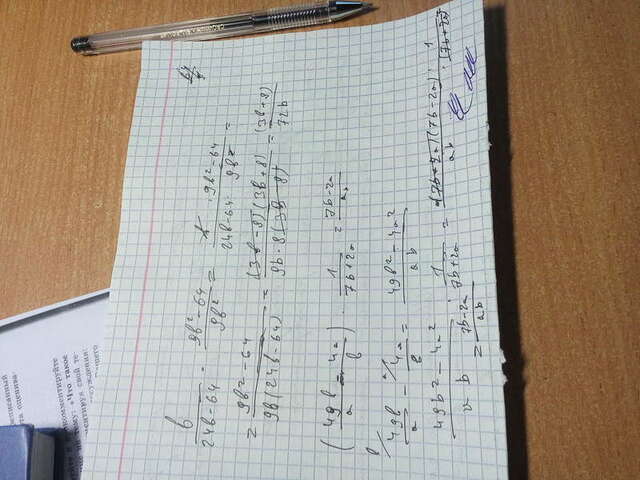 исанный
та оценива-
комментируйте
тему: «Что такое
ментируя свой те-
суждения:
64
b/(24b-64) · (9b²-64)/(9b²) = b/(24b-64) · (9b²-64)/(9b²) =
= (9b²-64)/(9b(24b-64)) = ((3b-8)(3b+8))/(9b·8(3b-8)) = (3b+8)/(72b)
(49b/a - 4a/b) · 1/(7b+2a) = (7b-2a)/(ab)
b/ 49b/a - a/ 4a/b = (49b²-4a²)/(ab)
(49b²-4a²)/(ab) · 1/(7b+2a) = ((7b+2a)(7b-2a))/(ab) · 1/(7b+2a)
= (7b-2a)/(ab)